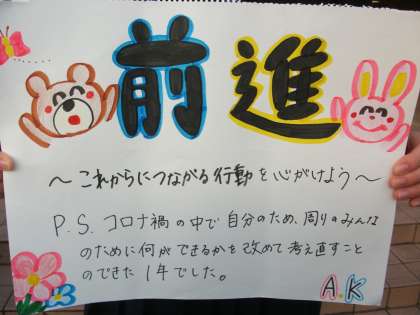 前進
～これからにつながる行動を心がけよう～
P.S. コロナ禍の中で自分のため、周りのみんな
のために何ができるかを改めて考え直すこと
のできた1年でした。
A.K